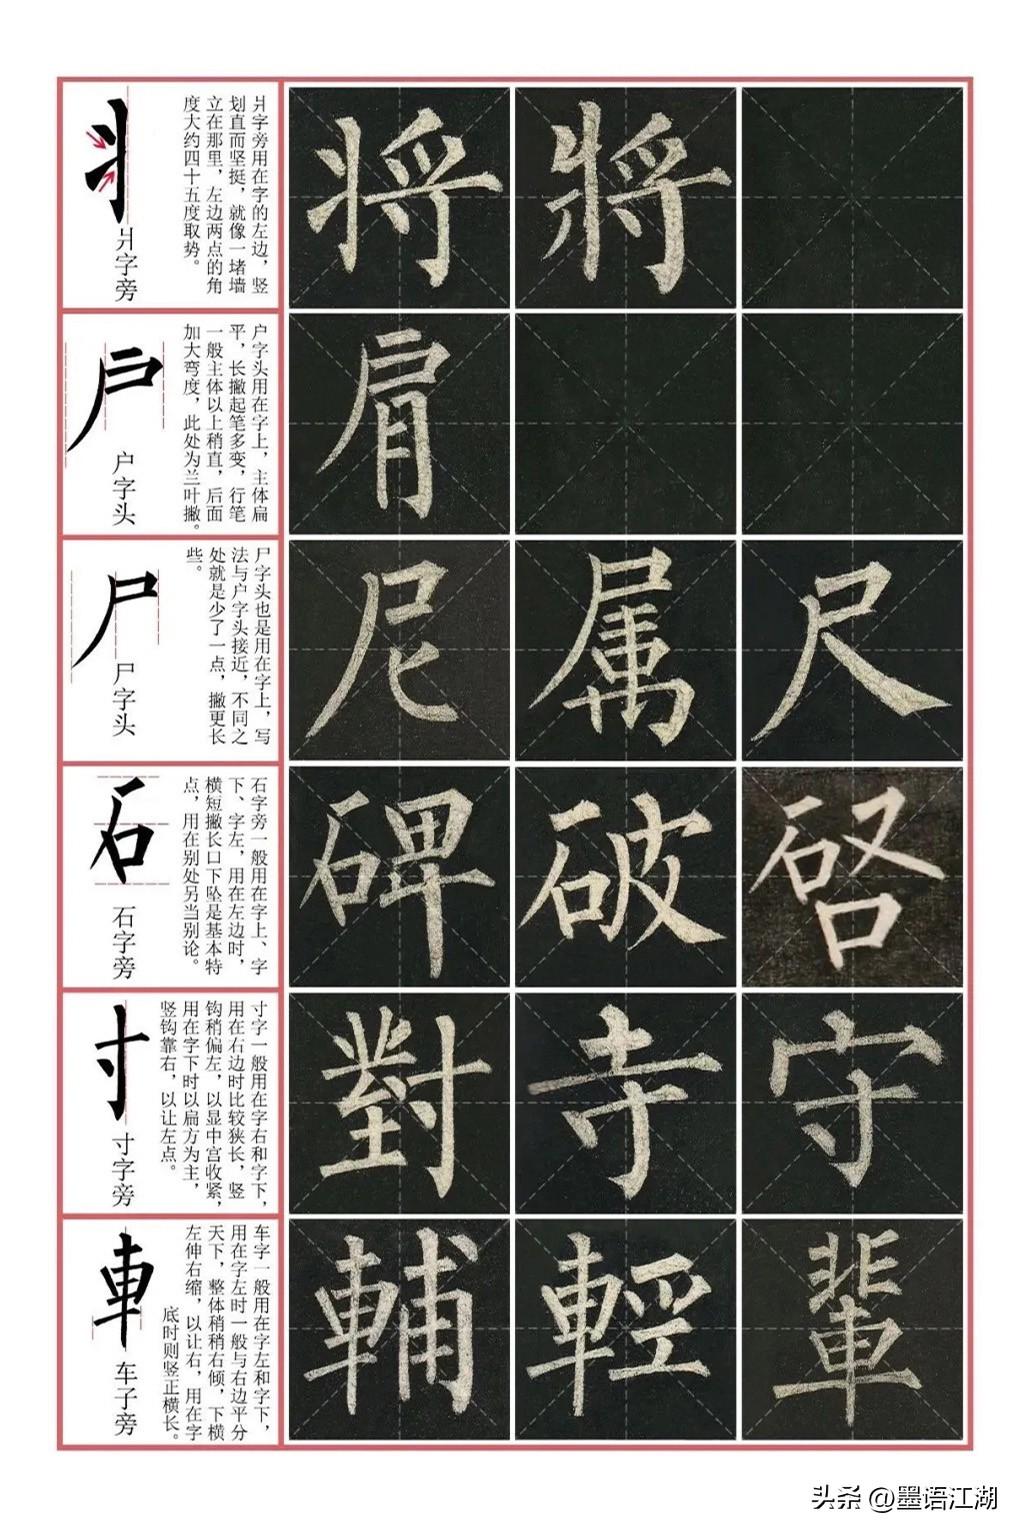 丬字旁用在字的左边，竖
划直而坚挺，就像一堵墙
立在那里，左边两点的角
度大约四十五度取势。
丬字旁
将 將
户字头用在字上，主体扁
平，长撇起笔多变，行笔
一般主体以上稍直，后面
加大弯度，此处为兰叶撇。
户
户字头
肩
尸字头也是用在字上，写
法与户字头接近，不同之
处就是少了一点，撇更长
些。
尸
尸字头
尼 属 尺
石字旁一般用在字上、字
下、字左，用在左边时，
横短撇长口下坠是基本特
点，用在别处另当别论。
石
石字旁
碑 破 啓
寸字一般用在字右和字下，
用在右边时比较狭长，竖
钩稍偏左，以显中宫收紧，
用在字下时以扁方为主，
竖钩靠右，以让左点。
寸
寸字旁
對 寺 守
车字一般用在字左和字下，
用在字左时一般与右边平分
天下，整体稍稍右倾，下横
左伸右缩，以让右，用在字
底时则竖正横长。
車
车子旁
輔 輕 輩
头条 @墨语江湖